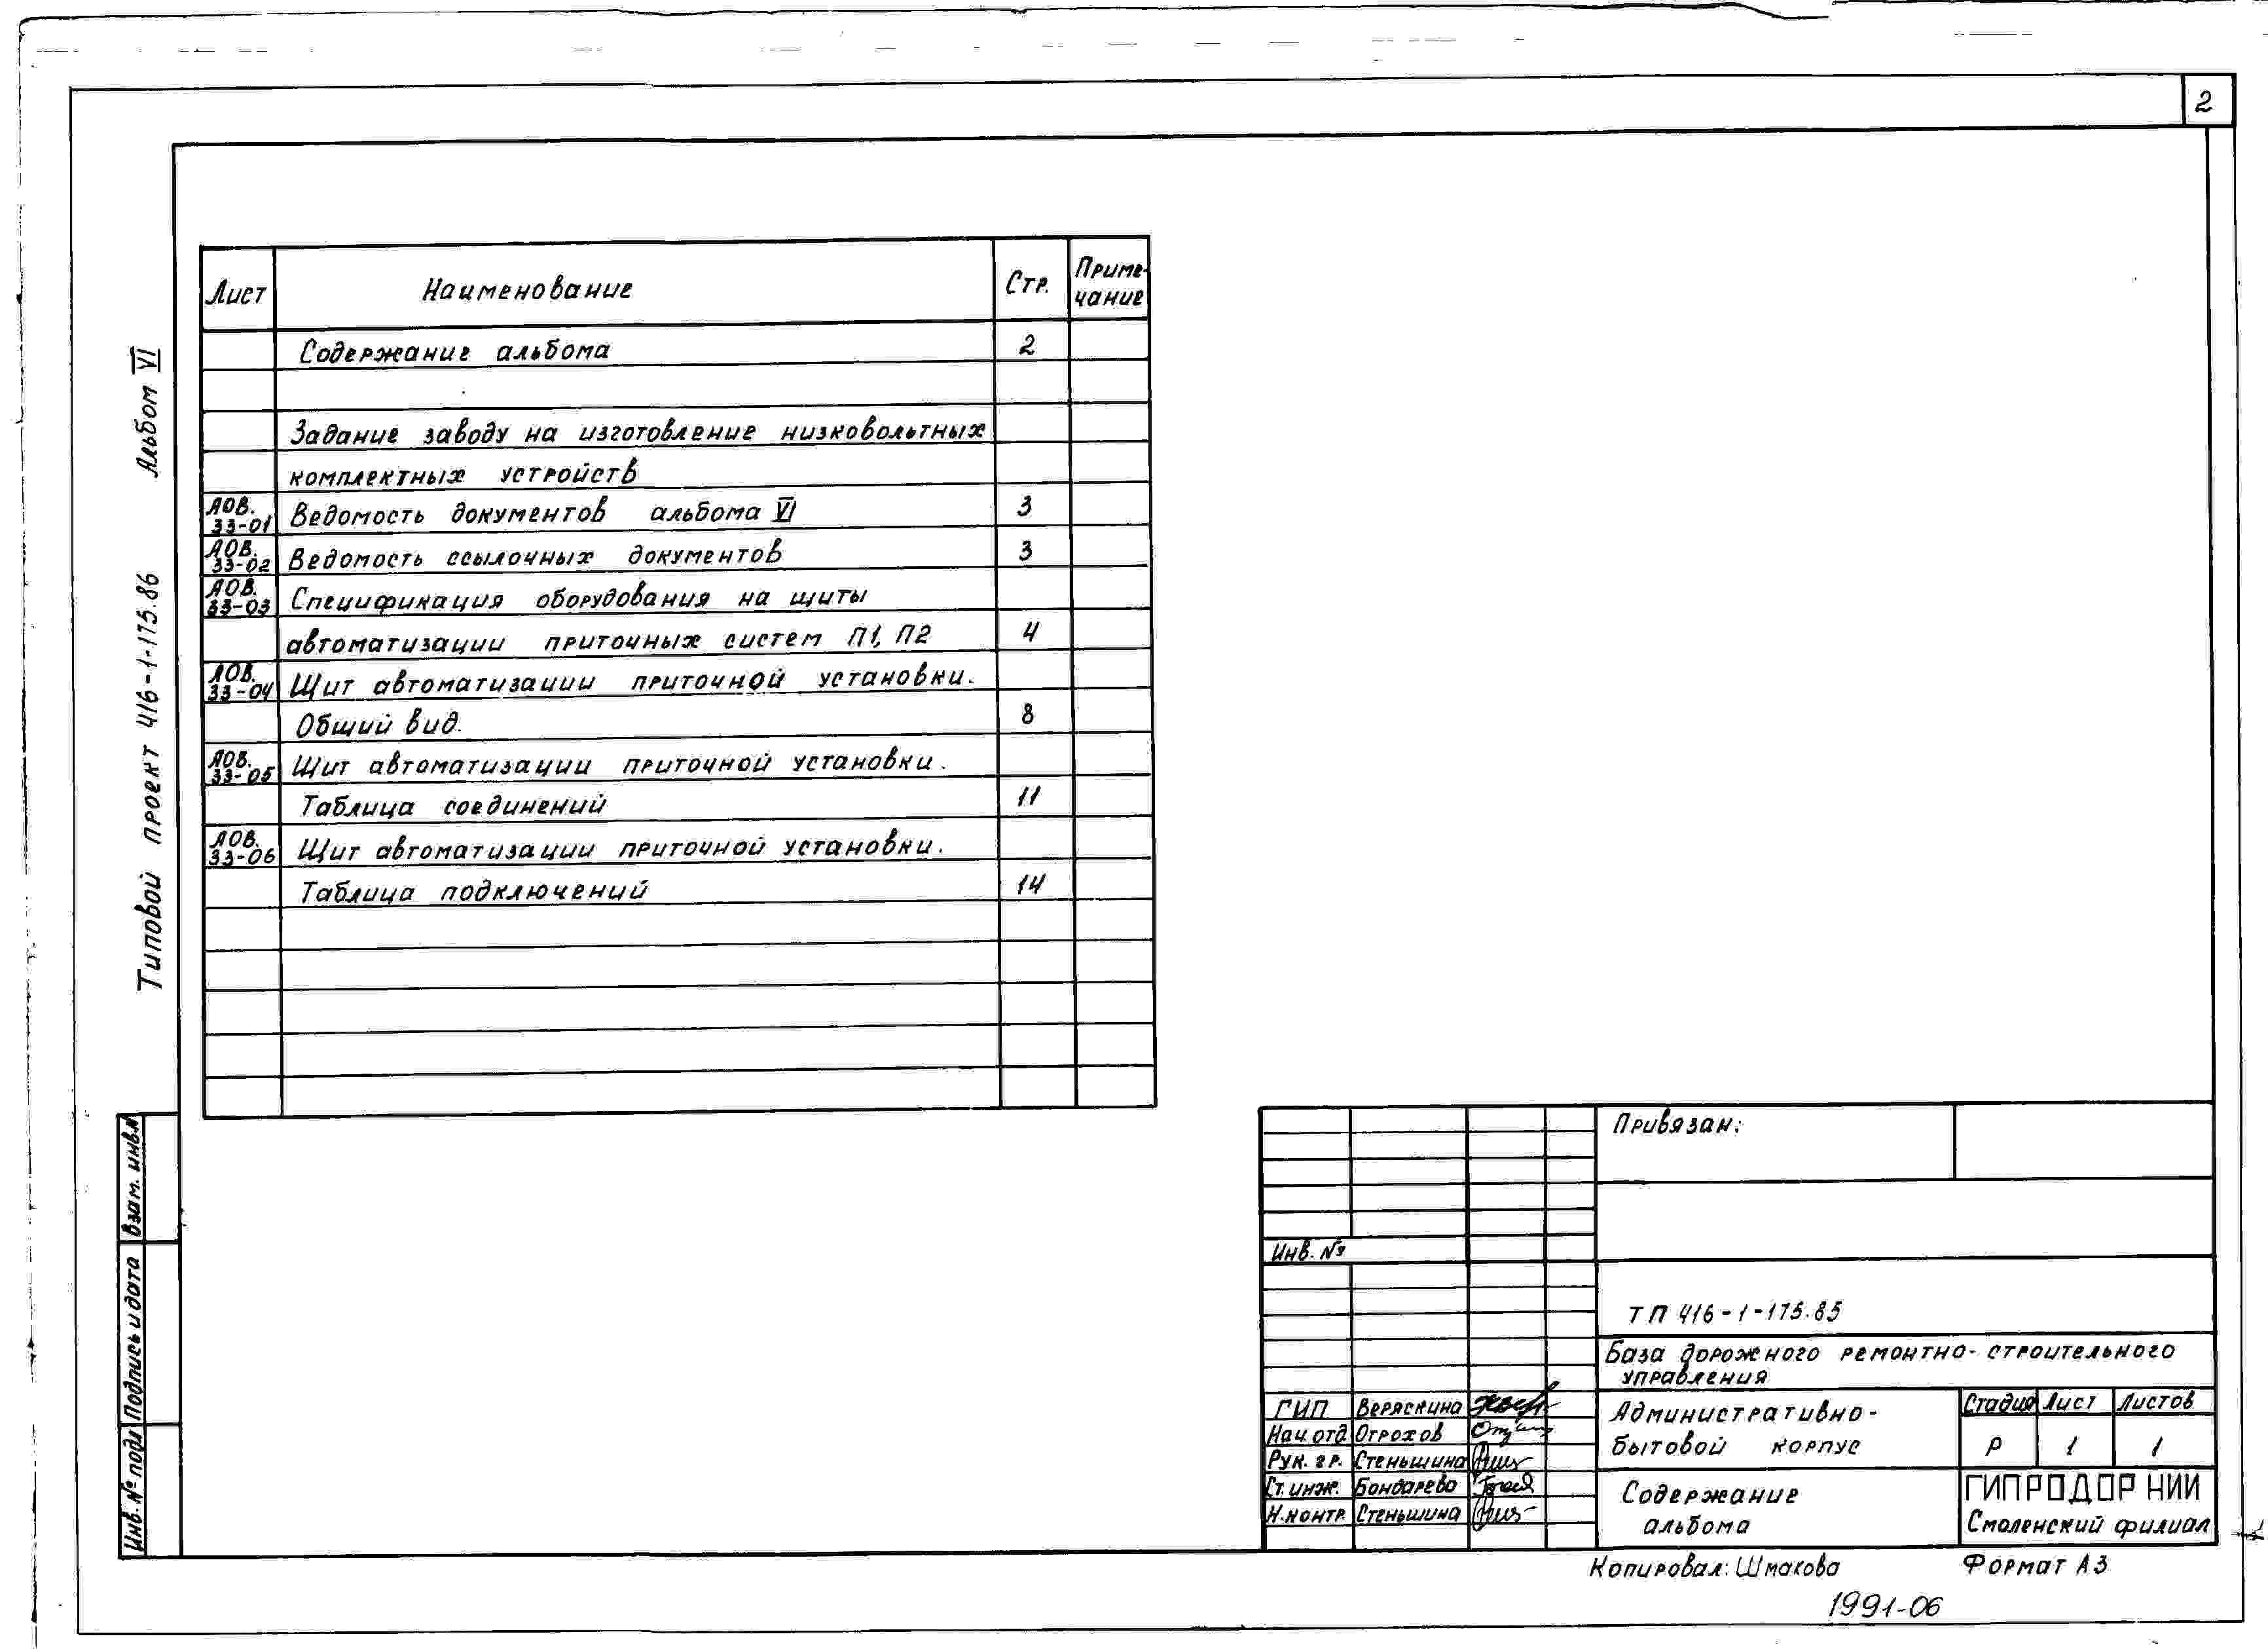 2
Альбом VI
Типовой проект 416-1-175.86
Лист Наименование Стр. Приме-
чание
Содержание альбома 2
Задание заводу на изготовление низковольтных
комплектных устройств
АОВ.
33-01 Ведомость документов альбома VI 3
АОВ.
33-02 Ведомость ссылочных документов 3
АОВ.
33-03 Спецификация оборудования на щиты
автоматизации приточных систем П1, П2 4
АОВ.
33-04 Щит автоматизации приточной установки.
Общий вид. 8
АОВ.
33-05 Щит автоматизации приточной установки.
Таблица соединений 11
АОВ.
33-06 Щит автоматизации приточной установки.
Таблица подключений 14
Взам. инв.№
Подпись и дата
Инв. № подл
Привязан:
Инв. №
ТП 416-1-175.85
База дорожного ремонтно-строительного
управления
ГИП Веряскина
Нач. отд Отрохов
Рук. гр. Стеньшина
Ст. инж. Бондарева
Н.контр. Стеньшина
Административно-
бытовой корпус
Стадия Лист Листов
Р 1 1
Содержание
альбома
ГИПРОДОРНИИ
Смоленский филиал
Копировал: Шмакова Формат А3
1991-06